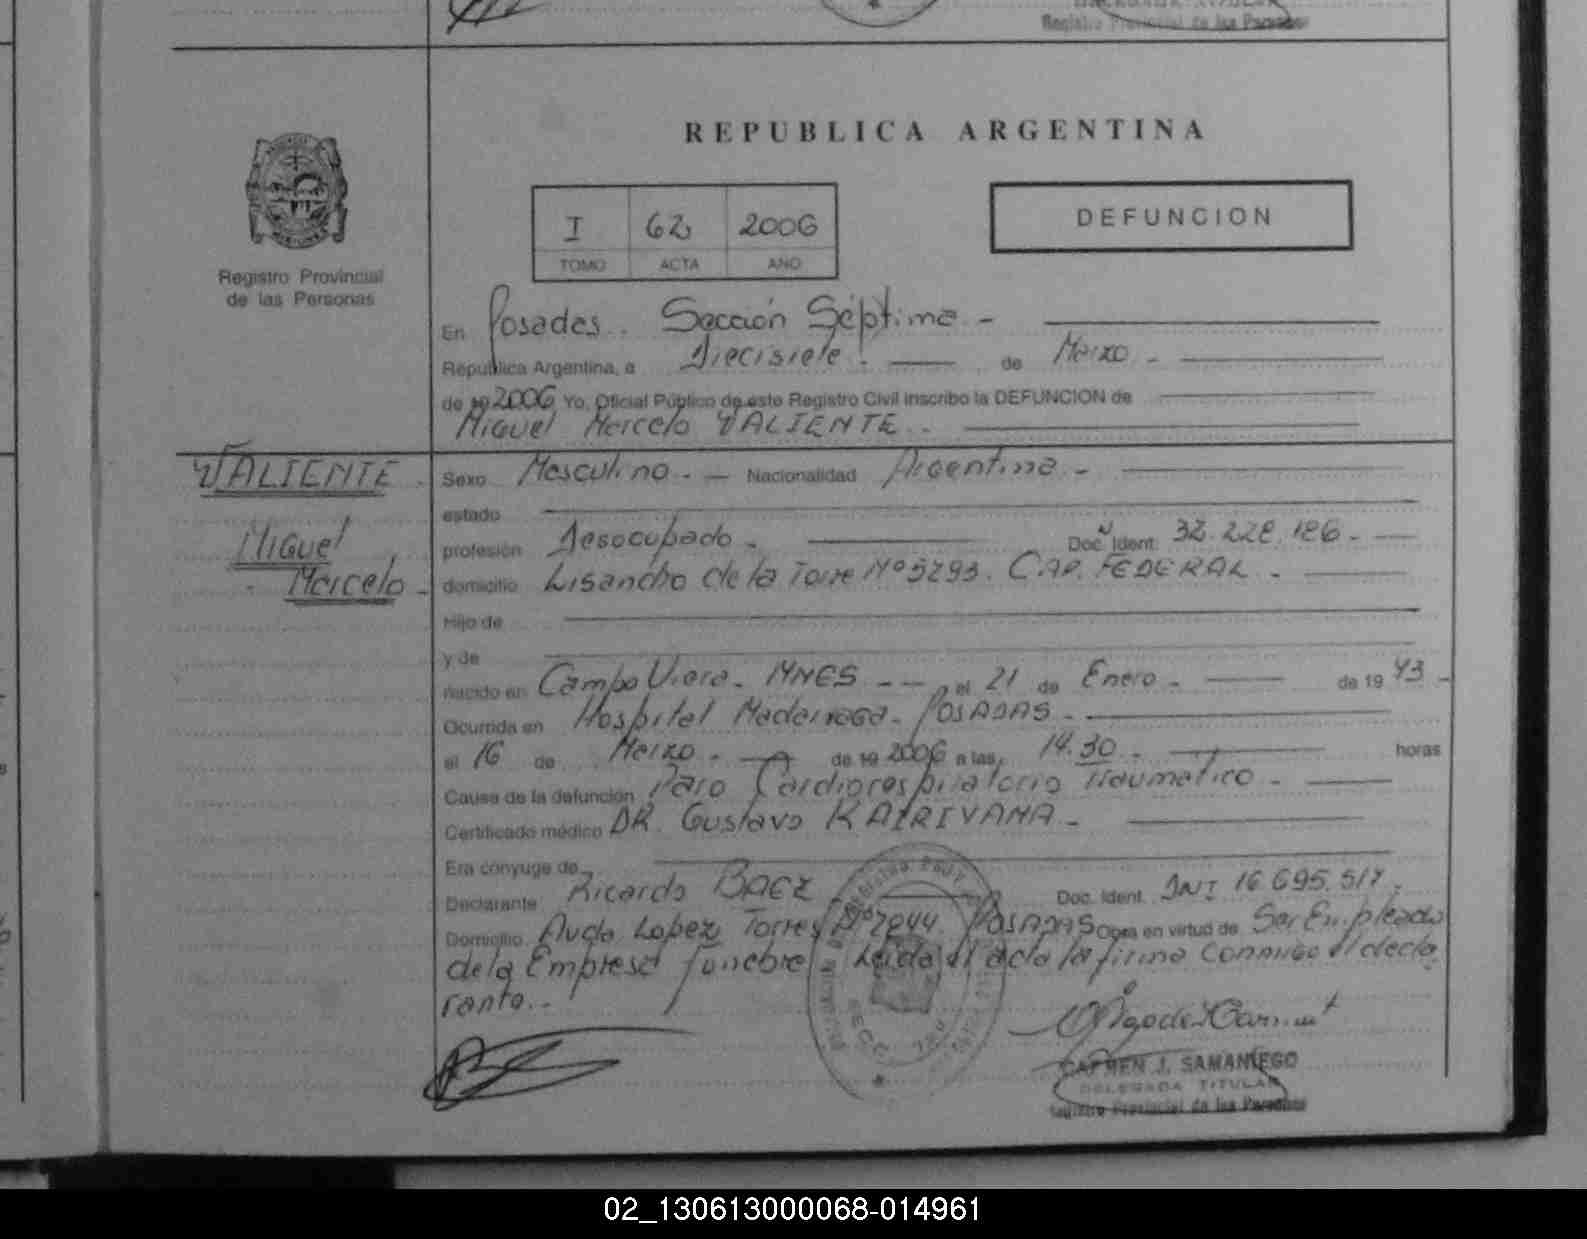 Registro Provincial de las Personas
REPUBLICA ARGENTINA
I 62 2006
TOMO ACTA AÑO
DEFUNCION
Registro Provincial
de las Personas
En Posadas. Sección Séptima -
República Argentina, a Diecisiete. de Marzo -
de 19 2006 Yo, Oficial Público de este Registro Civil inscribo la DEFUNCION de
Miguel Marcelo VALIENTE..
VALIENTE.
Miguel
Marcelo -
Sexo Masculino. - Nacionalidad Argentina -
estado
profesión Desocupado - Doc. Ident. Nº 32.228.126.-
domicilio Lisandro de la Torre Nº 5293. CAP. FEDERAL -
Hijo de
y de
nacido en Campo Viera - MNES - - el 21 de Enero - de 19 43 -
Ocurrida en Hospital Madariaga - POSADAS -
el 16 de Marzo - de 19 2006 a las 14.30 - horas
Causa de la defunción Paro Cardiorespiratorio Traumatico -
Certificado médico DR. Gustavo
Era cónyuge de
Declarante Ricardo BAEZ Doc. Ident. DNI 16.695.517.
Domicilio Avda Lopez Torres Nº 2844. POSADAS Obra en virtud de Ser Empleado
de la Empresa funebre. Leida el acta la firma Conmigo el decla
rante.-
CARMEN J. SAMANIEGO
DELEGADA TITULAR
Registro Provincial de las Personas
02_130613000068-014961